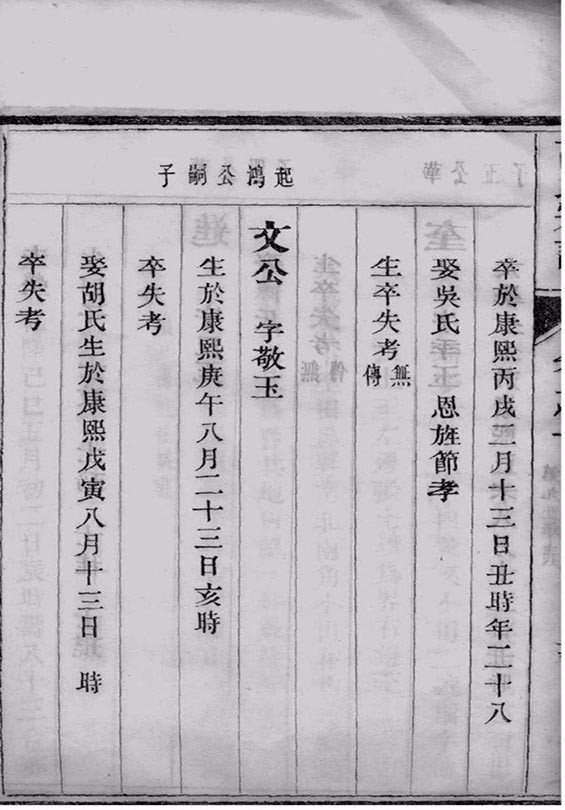 卒於康熙丙戌三月十三日丑時年二十八
娶吳氏 恩旌節孝
生卒失考無傳
起鴻公嗣子
文公 字敬玉
生於康熙庚午八月二十三日亥時
卒失考
娶胡氏生於康熙戊寅八月十三日 時
卒失考